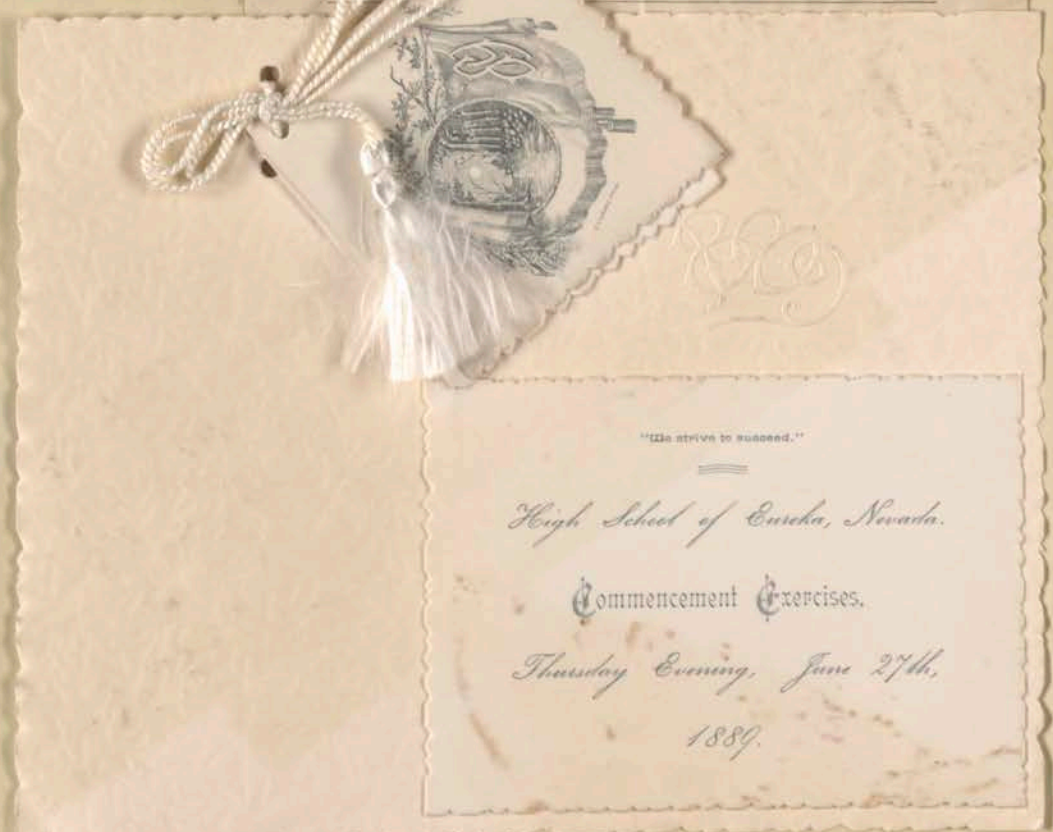 "We strive to succeed."
High School of Eureka, Nevada.
Commencement Exercises.
Thursday Evening, June 27th,
1889.